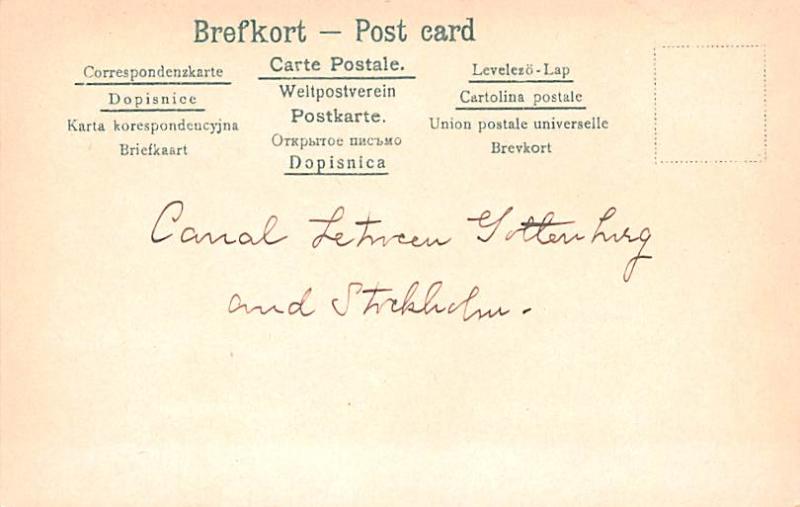 Brefkort — Post card
Correspondenzkarte
Dopisnice
Karta korespondencyjna
Briefkaart
Carte Postale.
Weltpostverein
Postkarte.
Открытое письмо
Dopisnica
Levelező-Lap
Cartolina postale
Union postale universelle
Brevkort
Canal between Gottenburg
and Stockholm.